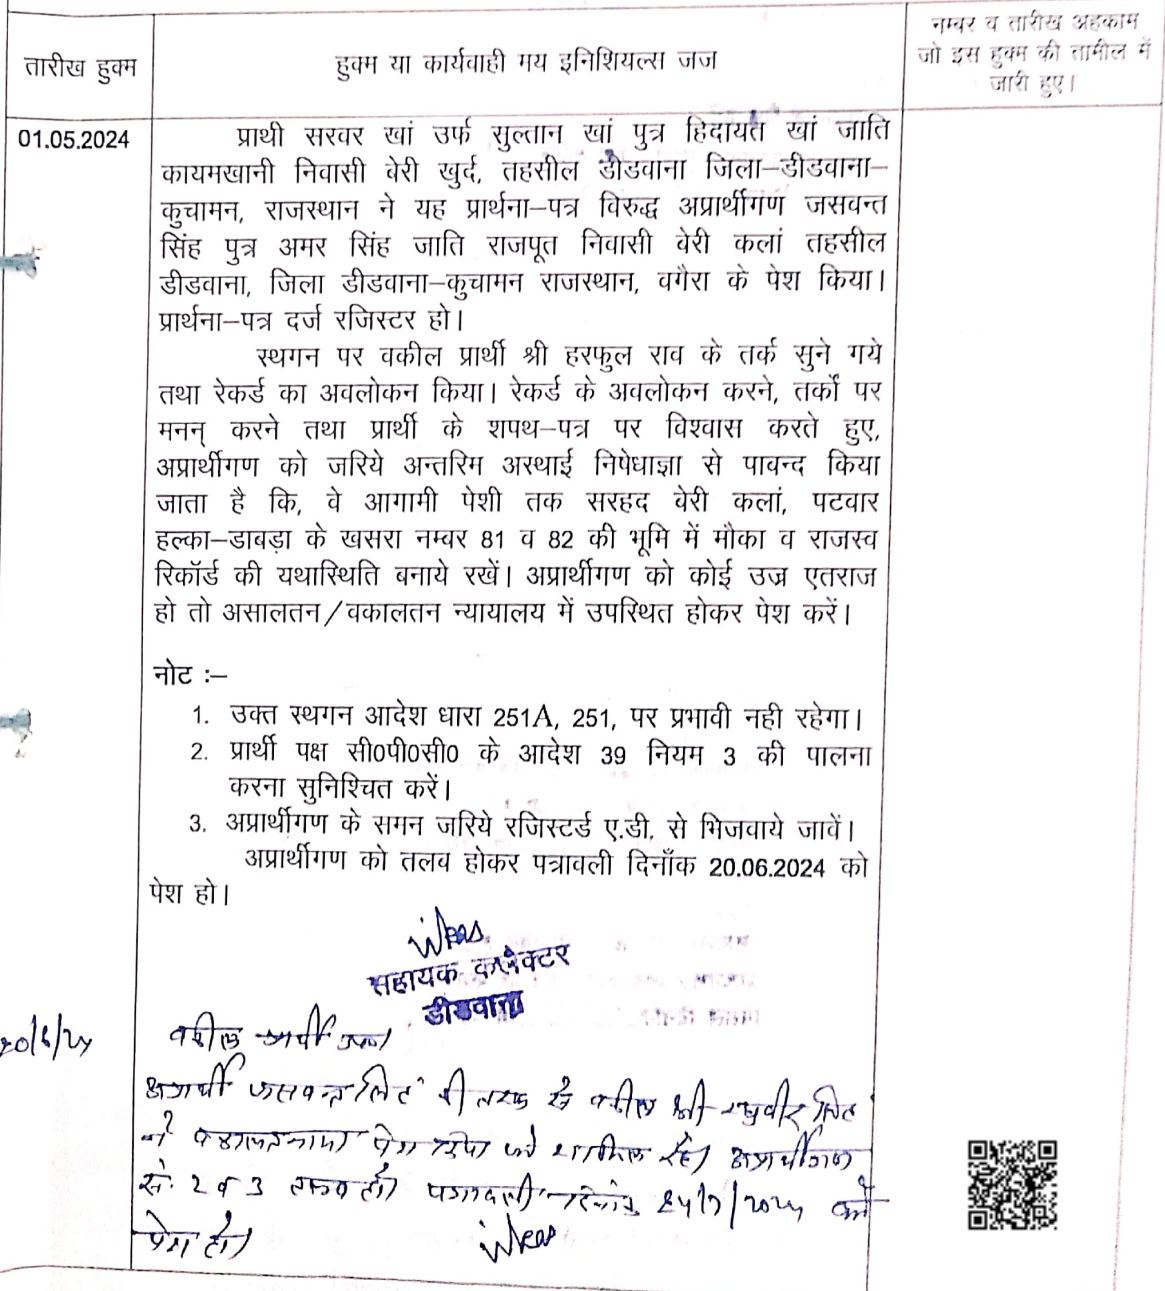 तारीख हुक्म
हुक्म या कार्यवाही मय इनिशियल्स जज
नम्बर व तारीख अहकाम
जो इस हुक्म की तामील में
जारी हुए।
01.05.2024
प्रार्थी सरवर खां उर्फ सुल्तान खां पुत्र हिदायत खां जाति
कायमखानी निवासी बेरी खुर्द, तहसील डीडवाना जिला–डीडवाना–
कुचामन, राजस्थान ने यह प्रार्थना–पत्र विरुद्ध अप्रार्थीगण जसवन्त
सिंह पुत्र अमर सिंह जाति राजपूत निवासी बेरी कलां तहसील
डीडवाना, जिला डीडवाना–कुचामन राजस्थान, वगैरा के पेश किया।
प्रार्थना–पत्र दर्ज रजिस्टर हो।
स्थगन पर वकील प्रार्थी श्री हरफुल राव के तर्क सुने गये
तथा रेकर्ड का अवलोकन किया। रेकर्ड के अवलोकन करने, तर्कों पर
मनन् करने तथा प्रार्थी के शपथ–पत्र पर विश्वास करते हुए,
अप्रार्थीगण को जरिये अन्तरिम अस्थाई निषेधाज्ञा से पाबन्द किया
जाता है कि, वे आगामी पेशी तक सरहद बेरी कलां, पटवार
हल्का–डाबड़ा के खसरा नम्बर 81 व 82 की भूमि में मौका व राजस्व
रिकॉर्ड की यथास्थिति बनाये रखें। अप्रार्थीगण को कोई उज्र एतराज
हो तो असालतन/वकालतन न्यायालय में उपस्थित होकर पेश करें।
नोट :–
1. उक्त स्थगन आदेश धारा 251A, 251, पर प्रभावी नही रहेगा।
2. प्रार्थी पक्ष सी0पी0सी0 के आदेश 39 नियम 3 की पालना
करना सुनिश्चित करें।
3. अप्रार्थीगण के समन जरिये रजिस्टर्ड ए.डी. से भिजवाये जावें।
अप्रार्थीगण को तलब होकर पत्रावली दिनाँक 20.06.2024 को
पेश हो।
सहायक कलेक्टर
डीडवाना
20/6/24
वकील प्रार्थी उप0।
अप्रार्थी जसवन्त सिंह की तरफ से वकील श्री रघुवीर सिंह
ने वकालतनामा पेश किया जो शामिल रहे। अप्रार्थीगण
सं. 2 व 3 तलब हो। पत्रावली दिनांक /2024 को
पेश हो।